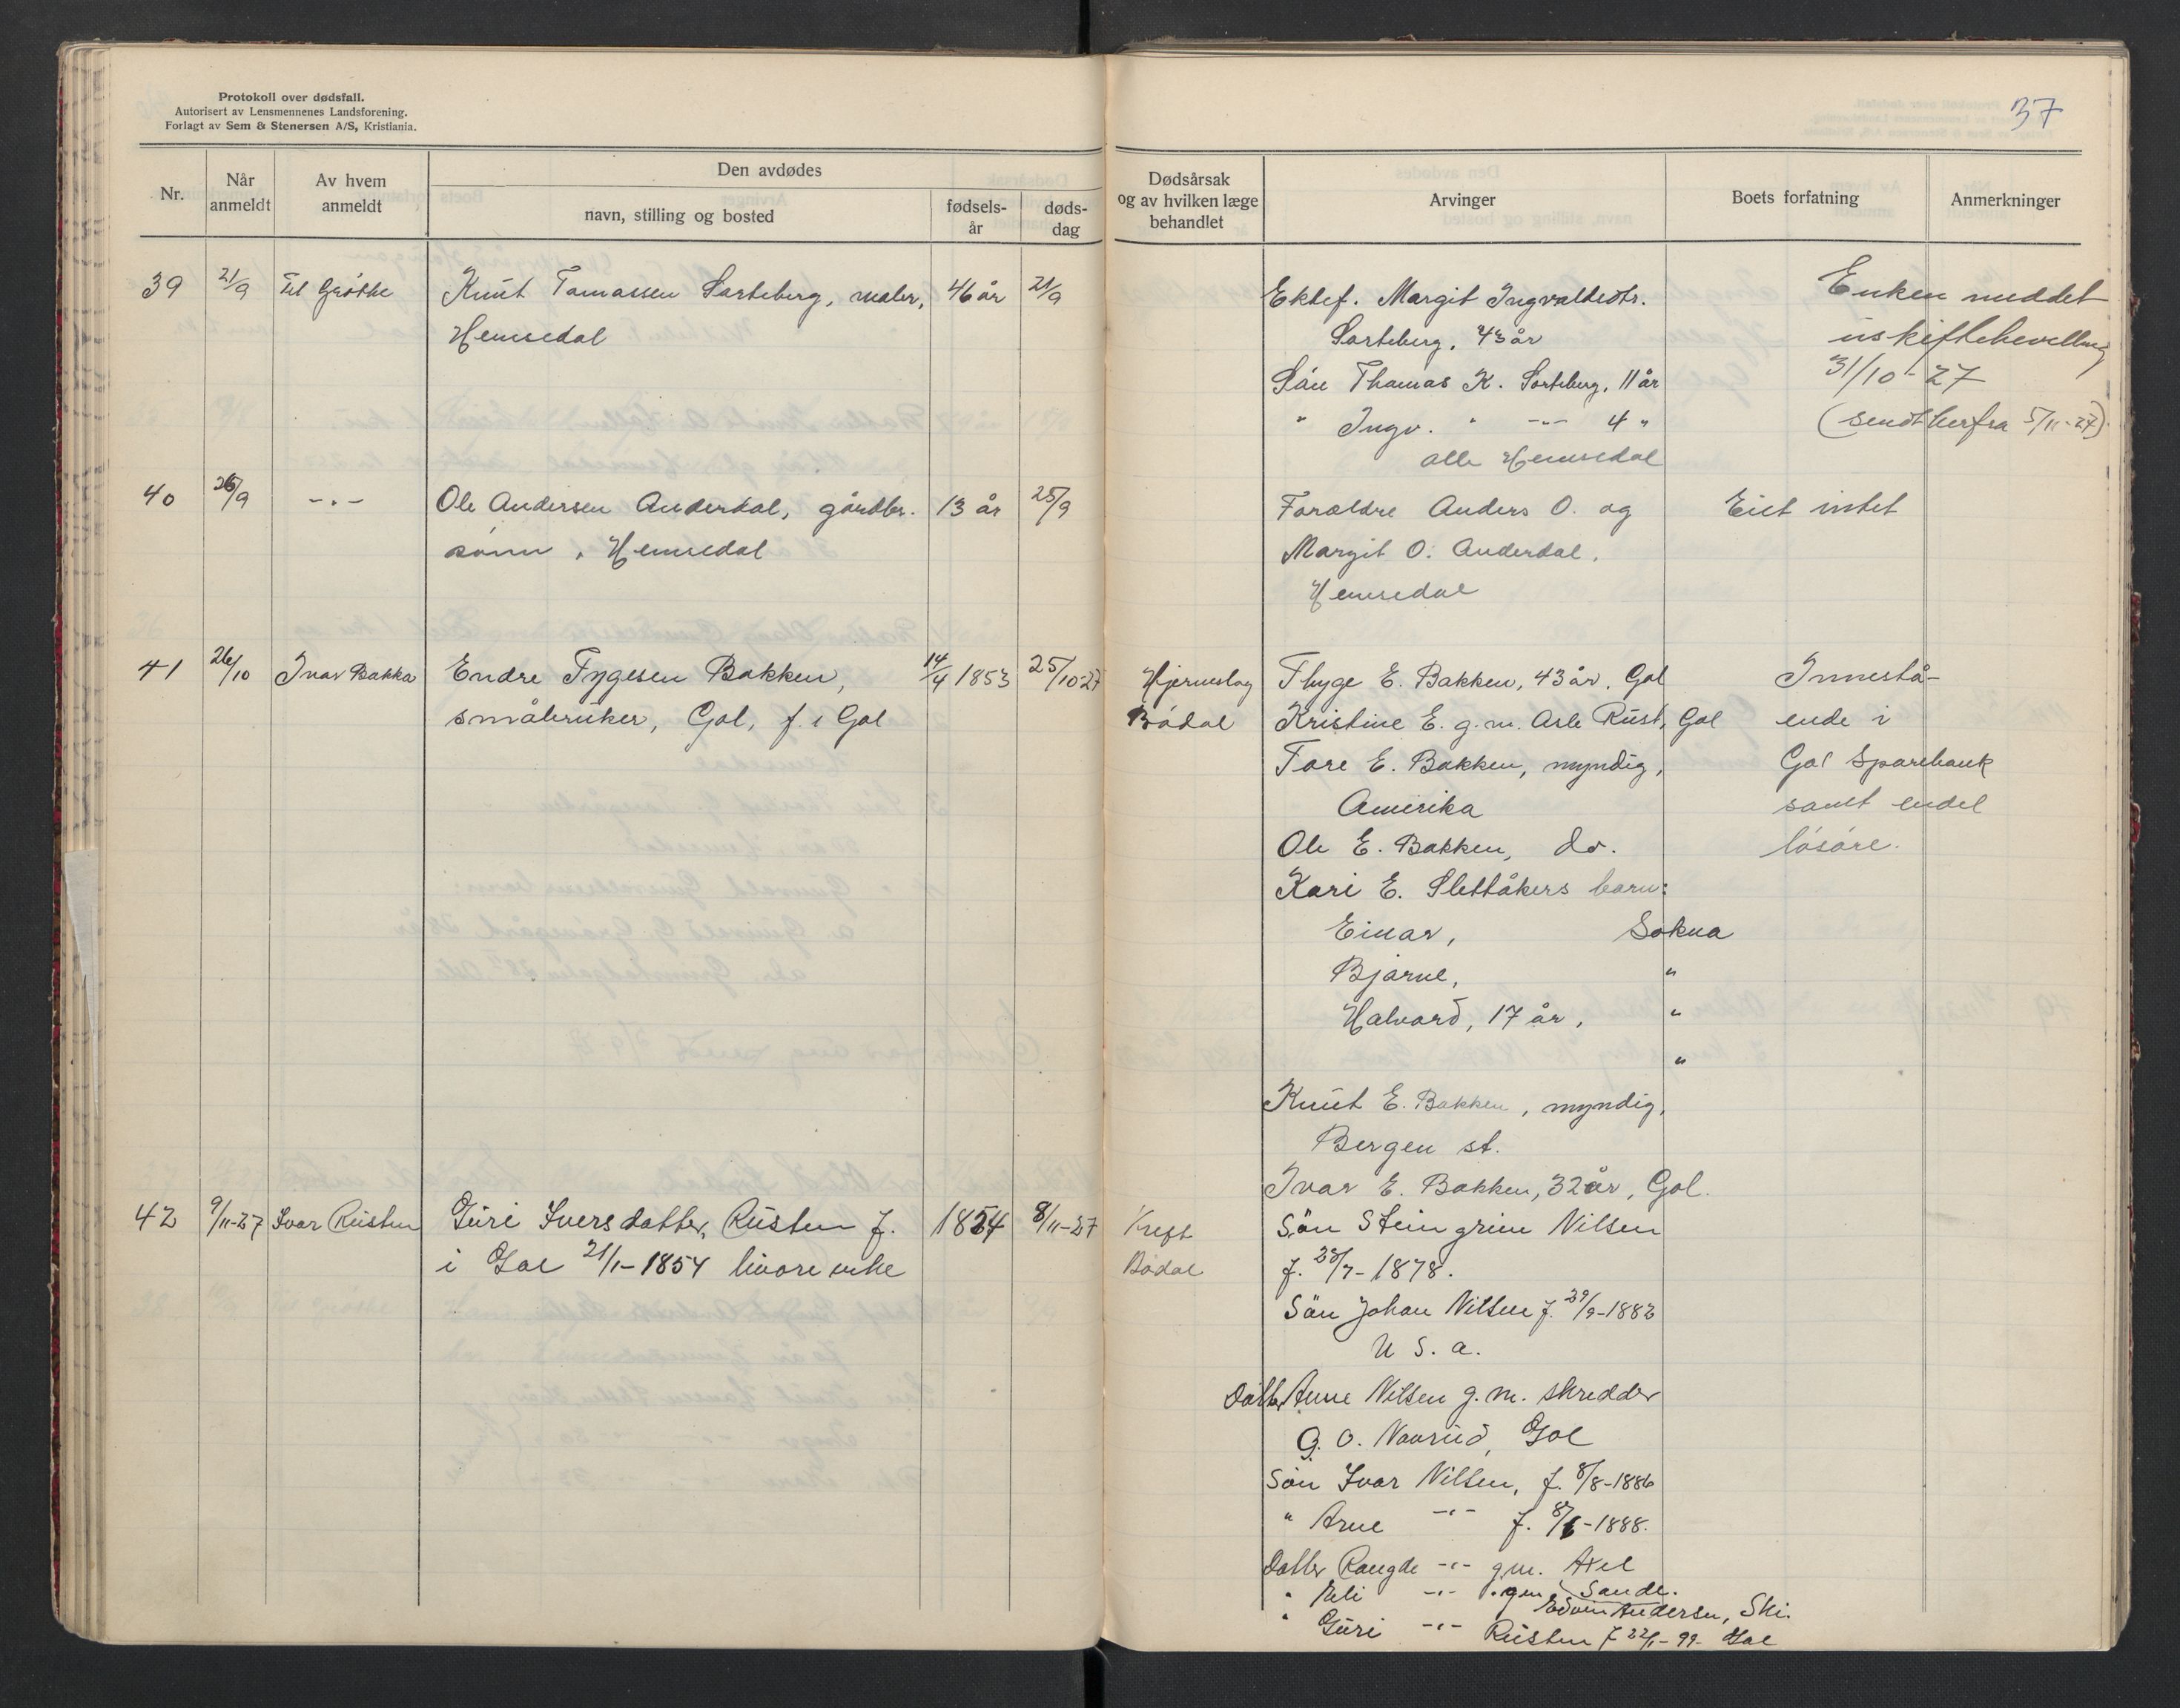 Protokoll over dødsfall.
Autorisert av Lensmennenes Landsforening.
Forlagt av Sem & Stenersen A/S, Kristiania.
37
Nr.
Når anmeldt
Av hvem anmeldt
Den avdødes
navn, stilling og bosted
fødsels-år
døds-dag
Dødsårsak og av hvilken læge behandlet
Arvinger
Boets forfatning
Anmerkninger
39 21/9 Knut Tomassen Sorteberg, maler, 46 år 21/9
Hemsedal
Ektef. Margit Ingvaldsdtr.
Sorteberg, 43 år
Søn Thomas K. Sorteberg, 11 år
" Ingv. " -"- 4 "
alle Hemsedal
Enken meddelt
uskiftebevilling
31/10-27
(sendt herfra 5/11-27)
40 26/9 -"- Ole Andersen Anderdal, gårdbr. 13 år 25/9
sønn, Hemsedal
Forældre Anders O. og
Margit O. Anderdal,
Hemsedal
Eiet intet
41 26/10 Ivar Bakka Endre Tygesen Bakken, 14/4 1853 25/10-27
småbruker, Gol, f. i Gol
Hjerneslag
Bödal
Thyge E. Bakken, 43 år, Gol
Kristine E. g.m. Asle Rust, Gol
Tore E. Bakken, myndig,
Amerika
Ole E. Bakken, do.
Kari E. Slettåkers barn:
Einar, Sokna
Bjarne, "
Halvard, 17 år, "
"
Knut E. Bakken, myndig,
Bergen st.
Ivar E. Bakken, 32 år, Gol.
Innestå-
ende i
Gol Sparebank
samt endel
løsøre.
42 9/11-27 Ivar Rusten Guri Iversdatter Rusten f. 1854 8/11-27
i Gol 21/1-1854 livøreenke
Kreft
Bödal
Søn Steingrim Nilsen
f. 28/7-1878.
Søn Johan Nilsen f. 29/9-1883
U S. a.
Datter Anne Nilsen g.m. skredder
G. O. Navrud, Gol
Søn Ivar Nilsen, f. 8/8-1886
" Arne -"- f. 8/6-1888.
Datter -"- gm. Axel
Sande.
" Eli -"- gm Edvin Andersen, Ski.
" Guri -"- Rusten f 22/1-99- Gol